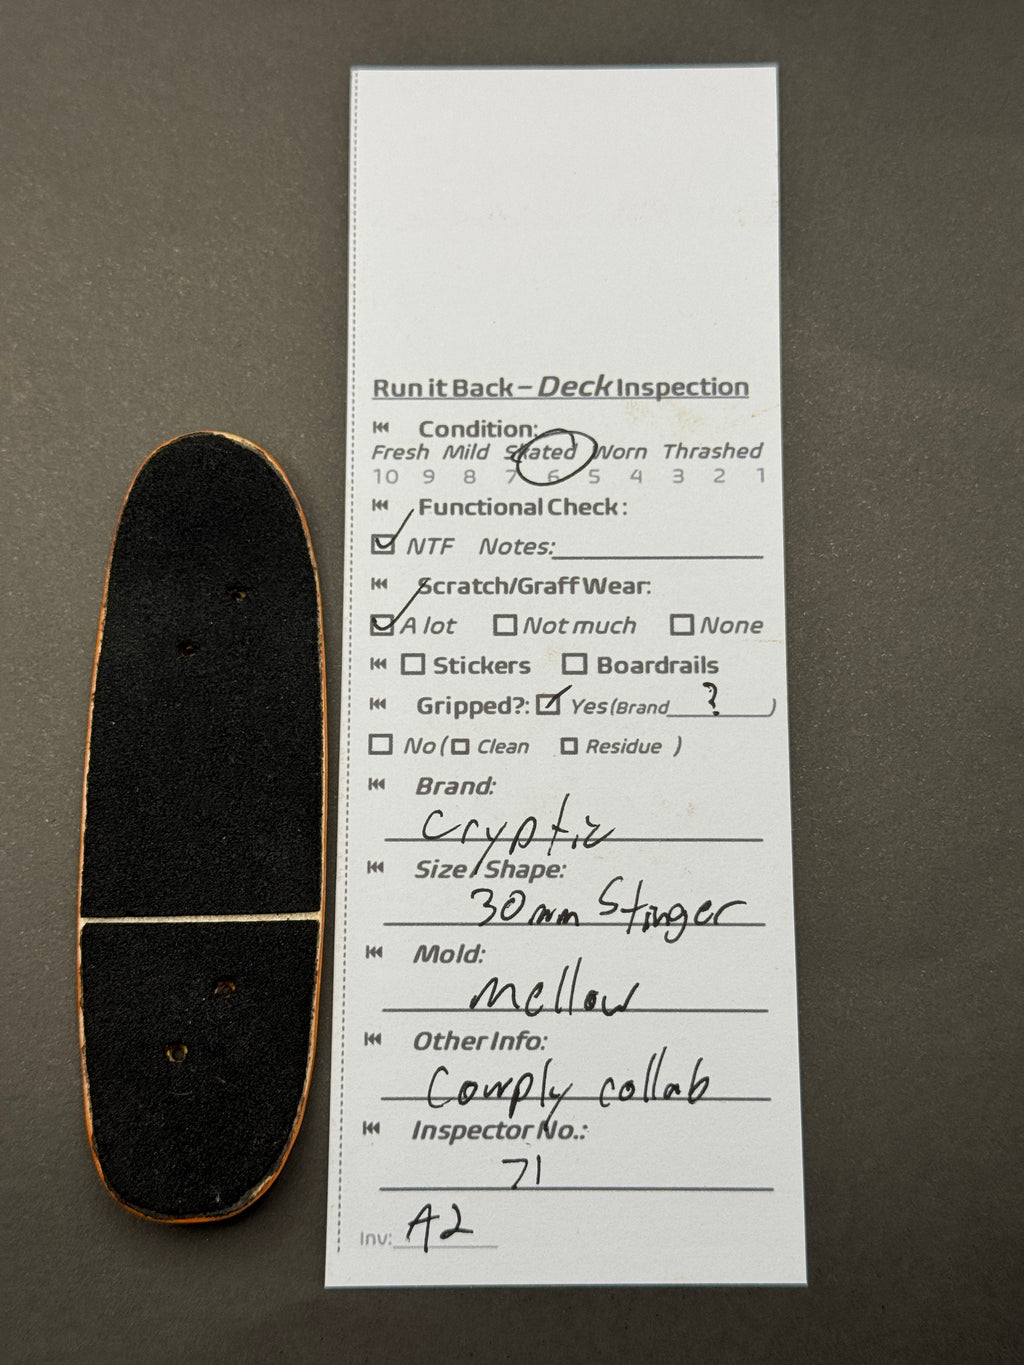 Run it Back – Deck Inspection
Condition:
Fresh Mild Skated Worn Thrashed
10 9 8 7 6 5 4 3 2 1
Functional Check:
NTF Notes:
Scratch/Graff Wear:
A lot Not much None
Stickers Boardrails
Gripped?: Yes (Brand ? )
No ( Clean Residue )
Brand:
Cryptic
Size/Shape:
30mm Stinger
Mold:
Mellow
Other Info:
Comply collab
Inspector No.:
71
Inv: A2